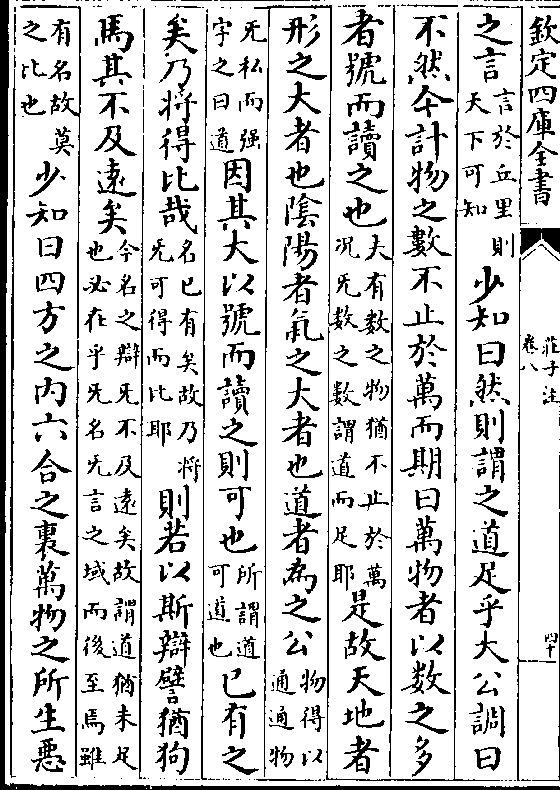 欽定四庫全書
莊子注
卷八
四十
之言言於丘里則天下可知少知曰然則謂之道足乎大公調曰
不然今計物之數不止於萬而期曰萬物者以数之多
者號而讀之也夫有數之物猶不止於萬况旡数之數謂道而足耶是故天地者
形之大者也陰陽者氣之大者也道者為之公物得以通通物
旡私而强字之曰道因其大以號而讀之則可也所謂道可道也已有之
矣乃将得比哉名已有矣故乃将旡可得而比耶則若以斯辯譬猶狗
馬其不及遠矣今名之辯旡不及遠矣故謂道猶未足也必在乎旡名旡言之域而後至焉雖
有名故莫之比也少知曰四方之内六合之裏萬物之所生惡